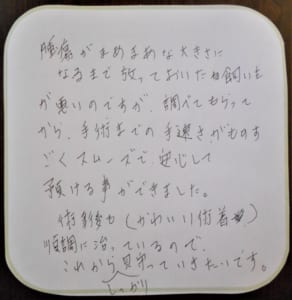 腫瘍がまあまあな大きさに
なるまで放っておいた飼い主
が悪いのですが、調べてもらって
から、手術までの手速さがものす
ごくスムーズで、安心して
預ける事ができました。
術後も(かわいい術着)
順調に治っているので、
これから見守っていきたいです。
しっかり